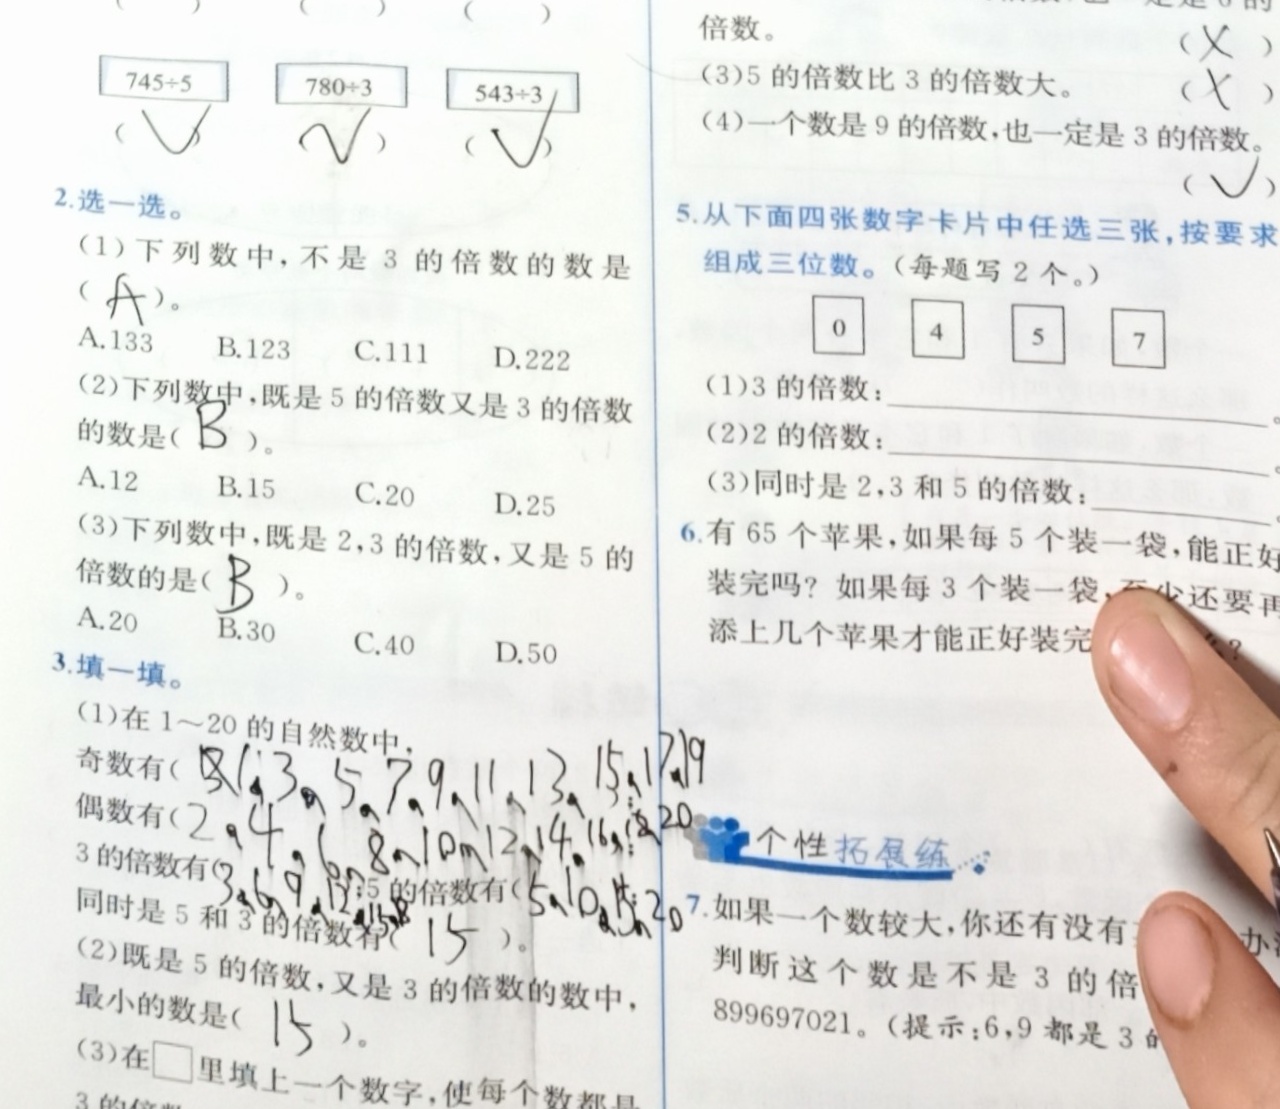 (　　) (　　) (　　)
745÷5 780÷3 543÷3
(√) (√) (√)
2.选一选。
(1)下列数中,不是 3 的倍数的数是
(A)。
A.133 B.123 C.111 D.222
(2)下列数中,既是 5 的倍数又是 3 的倍数
的数是(B)。
A.12 B.15 C.20 D.25
(3)下列数中,既是 2,3 的倍数,又是 5 的
倍数的是(B)。
A.20 B.30 C.40 D.50
3.填一填。
(1)在 1~20 的自然数中,
奇数有(1,3,5,7,9,11,13,15,17,19
偶数有(2,4,6,8,10,12,14,16,18,20
3 的倍数有(3,6,9,12,15,18 5 的倍数有(5,10,15,20
同时是 5 和 3 的倍数有(15)。
(2)既是 5 的倍数,又是 3 的倍数的数中,
最小的数是(15)。
(3)在□里填上一个数字,使每个数都是
3 的倍数
倍数。 (X)
(3)5 的倍数比 3 的倍数大。 (X)
(4)一个数是 9 的倍数,也一定是 3 的倍数。
(√)
5.从下面四张数字卡片中任选三张,按要求
组成三位数。(每题写 2 个。)
0 4 5 7
(1)3 的倍数:
(2)2 的倍数:
(3)同时是 2,3 和 5 的倍数:
6.有 65 个苹果,如果每 5 个装一袋,能正好
装完吗? 如果每 3 个装一袋,至少还要再
添上几个苹果才能正好装完
个性拓展练
7.如果一个数较大,你还有没有
判断这个数是不是 3 的倍
899697021。(提示:6,9 都是 3 的